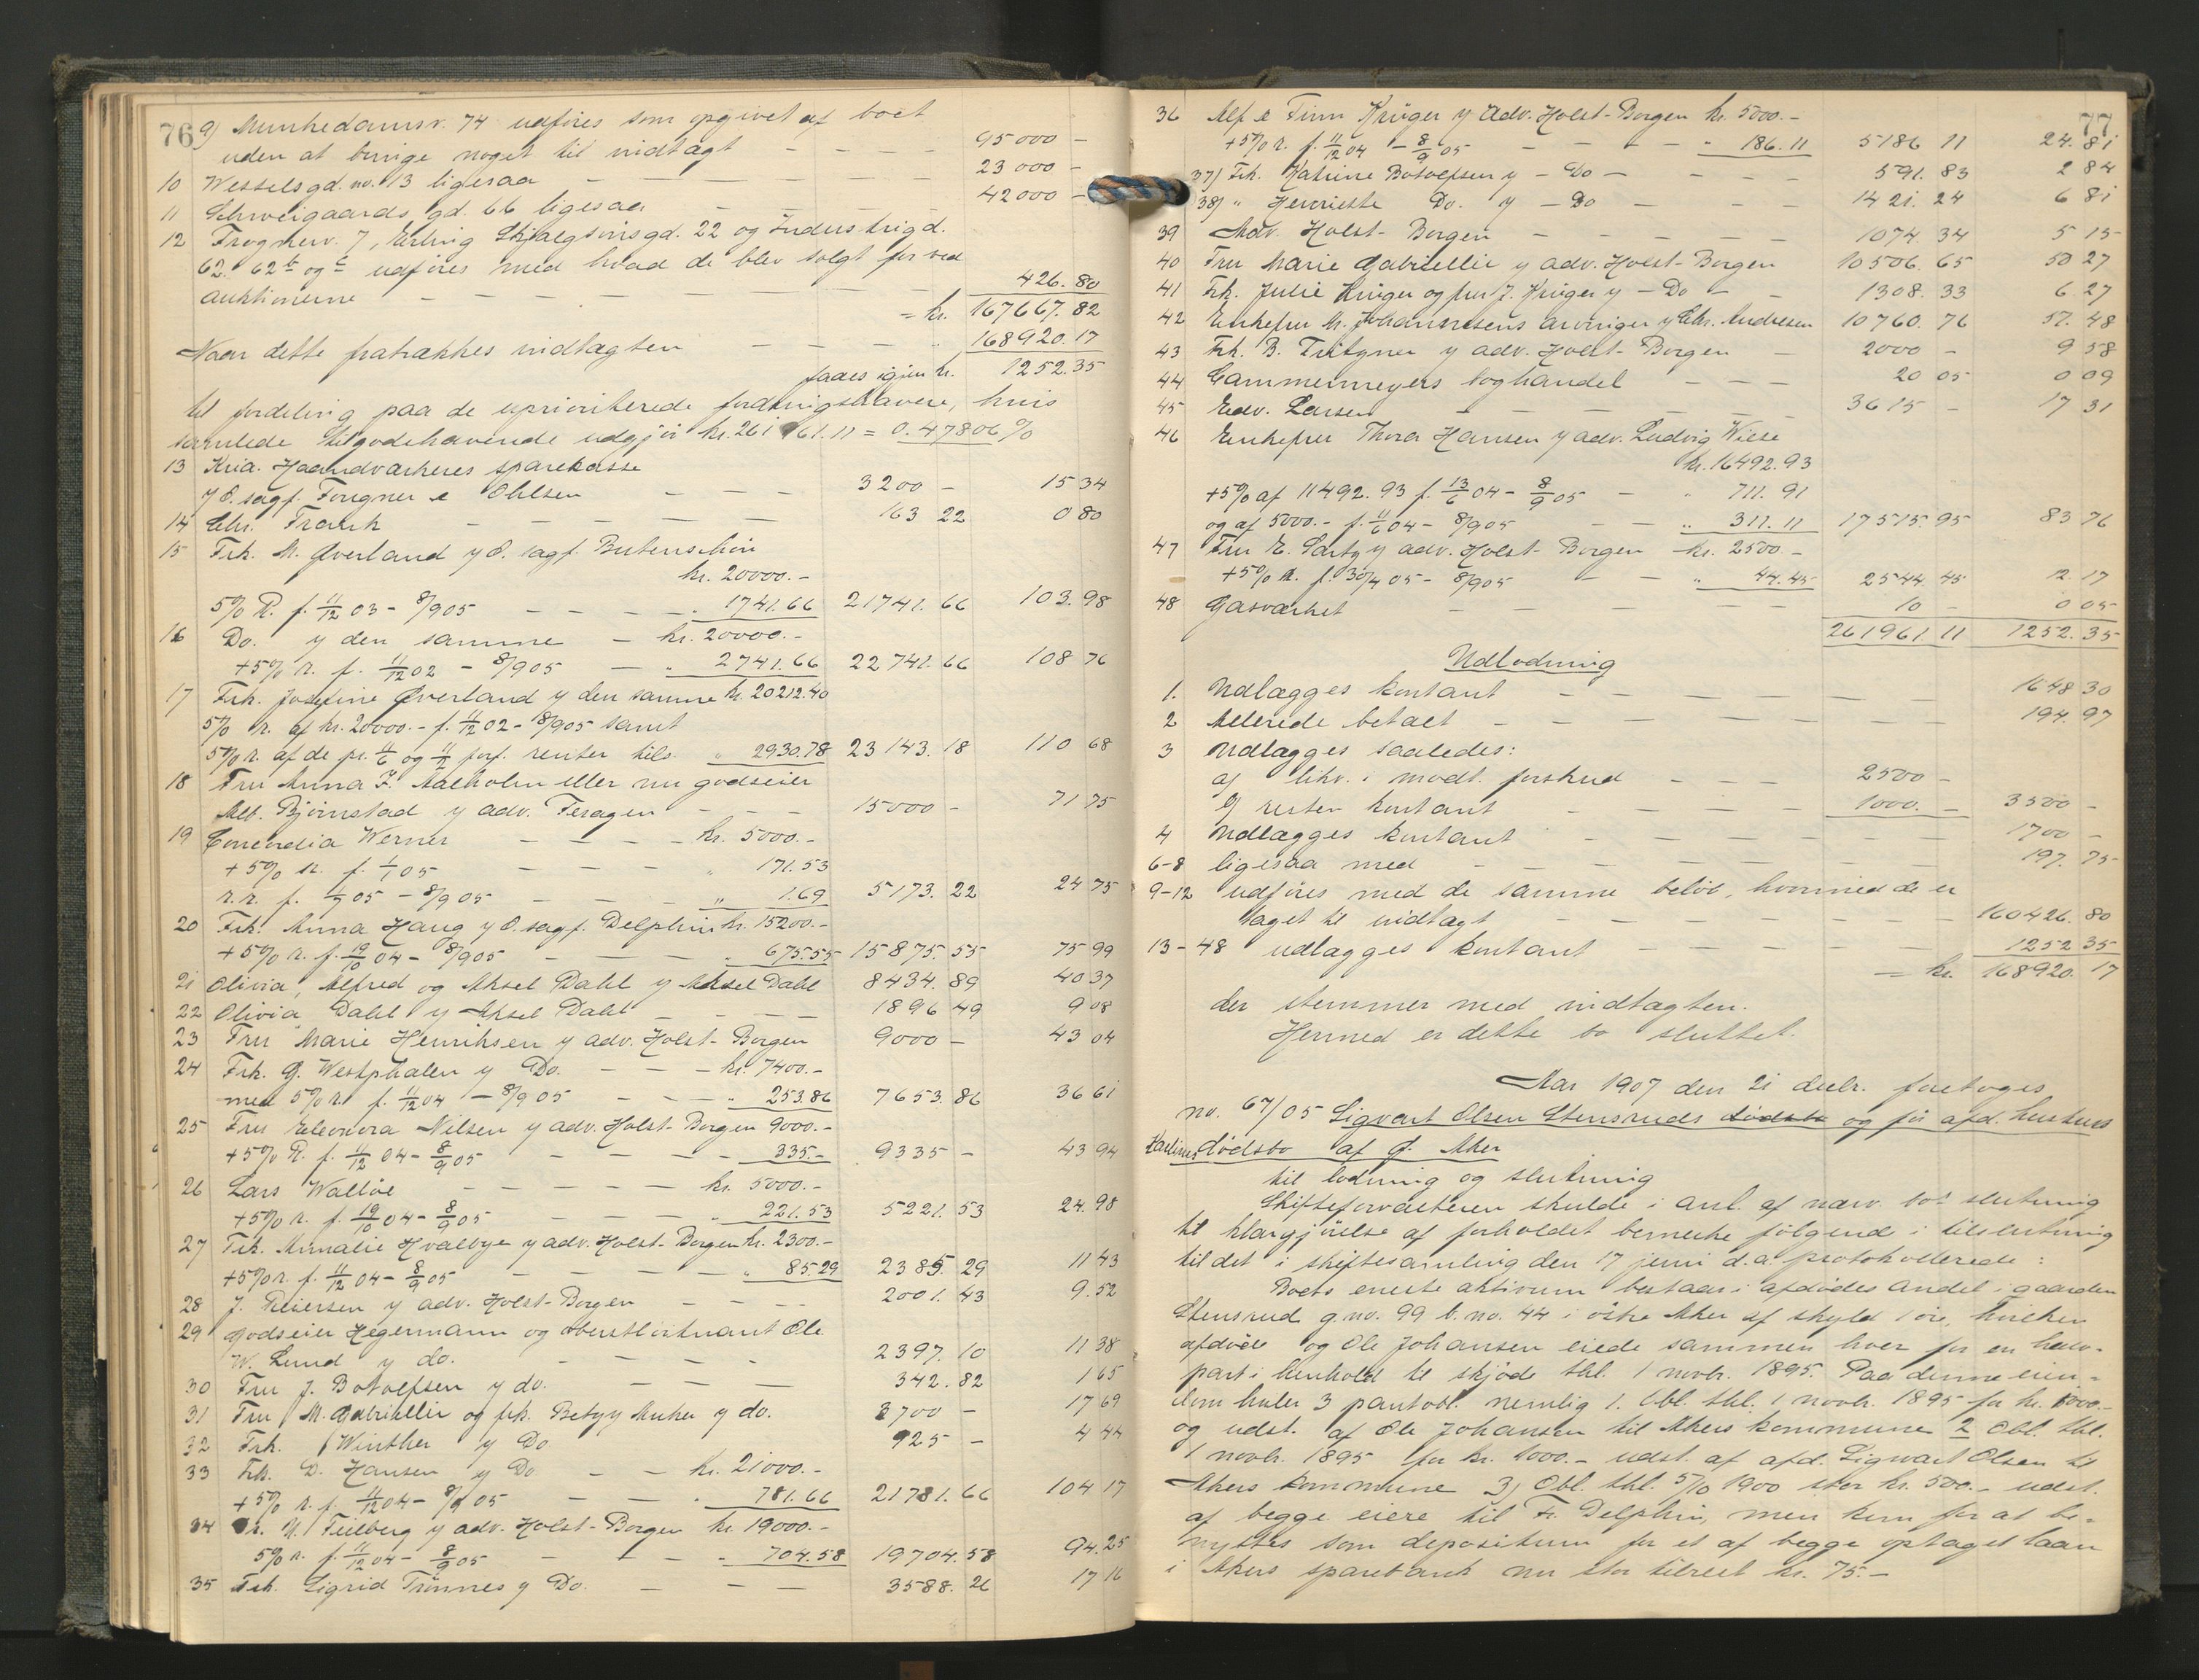 76
9) Munkedamsv. 74 udføres som opgivet af boet
uden at bringe noget til indtægt — — — — 95000 —
10 Wesselsgd. no. 13 ligesaa — — — — 23000 —
11 Schweigaards gd. 66 ligesaa — — — — 42000 —
12 Frognerv. 7, Erling Skjalgsønsgd. 22 og Industrigd.
62. 62b og c udføres med hvad de blev solgt for ved
auktionerne — — — — 426.80
= kr. 167667.82
Naar dette fratrækkes indtægten — — — — " 168920.17
faaes igjen kr. 1252.35
til fordeling paa de uprioriterede fordringshavere, hvis
samlede tilgodehavende udgjør kr. 261961.11 = 0.47806 %
13 Kria. Haandværkeres sparekasse
y O. sagf. Fougner & Ohlsen — — — 3200 — 15 34
14 Chr. Frank — — — — 163 22 0 80
15 Frk. M. Øverland y O. sagf. Butenschøn
kr. 20000.-
5% R. f. 11/12 03 - 8/9 05 — — — — " 1741.66 21741.66 103.98
16 Do. y den samme — kr. 20000.-
+5% r. f. 11/12 02 - 8/9 05 — " 2741.66 22741.66 108 76
17 Frk. Josefine Øverland y den samme kr. 20212.40
5% r. af kr. 20000.- f. 11/12 02 - 8/9 05 samt
5% r. af de pr. 11/6 og 11/12 forf. renter tils. " 2930.78 23143.18 110 68
18 Fru Anna F. Aalholm eller nu godseier
Alb. Bjørnstad y adv. Feragen — — 15000 — 71 75
19 Concordia Werner — — — — kr. 5000.-
+5% r. f. 1/1 05 — — — — " 171.53
r.r. f. 1/7 05 - 8/9 05 — — — " 1.69 5173.22 24 75
20 Frk. Anna Haug y O. sagf. Delphin kr. 15200.-
+5% r. f. 19/10 04 - 8/9 05 — — — " 675.55 15875.55 75 99
21 Olivia, Alfred og Aksel Dahl y Aksel Dahl 8434.89 40 37
22 Olivia Dahl y Aksel Dahl — — — — 1896 49 9 08
23 Fru Marie Henriksen y adv. Holst-Borgen 9000 — 43 04
24 Frk. G. Westphalen y Do. — — — kr. 7400.-
med 5% r. f. 11/12 04 - 8/9 05 — — — " 253.86 7653.86 36 61
25 Fru Eleonora Nilsen y adv. Holst-Borgen 9000.-
+5% R. f. 11/12 04 - 8/9 05 — — — — 335.- 9335 — 43 94
26 Lars Walløe — — — — — kr. 5000.-
+5% r. f. 19/10 04 - 8/9 05 — — — " 221.53 5221.53 24.98
27 Frk. Annalie Hvalbye y adv. Holst-Borgen kr. 2300.-
+5% r. f. 11/12 04 - 8/9 05 — — — — " 85.29 2385.29 11 43
28 J. Reiersen y adv. Holst-Borgen — — — — 2001.43 9.52
29 Godseier Hegermann og oberstløitnant Ole
W. Lund y do. — — — — 2397.10 11 38
30 Fru J. Botolfsen y do. — — — 342.82 1 65
31 Fru M. Gabriellie og frk. Betzy Anker y do. 3700 — 17 69
32 Frk. Winther y Do 925 — 4 44
33 Frk. D. Hansen y Do — — kr. 21000.-
+5% r. f. 11/12 04 - 8/9 05 — — — " 781.66 21781.66 104 17
34 Fr. N. Feilberg y adv. Holst-Borgen kr. 19000.-
5% r. f. 11/12 04 - 8/9 05 — — — " 704.58 19704.58 94.25
35 Frk. Sigrid Trønnes y Do. — — — 3588.26 17 16
77
36 Alf & Finn Krüger y Adv. Holst-Borgen kr. 5000.-
+5% r. f. 11/12 04 - 8/9 05 — — — — " 186.11 5186 11 24.81
37) Frk. Katrine Botolfsen y — Do — — — — 591.83 2 84
38) " Henriette Do. y — Do — — — 1421.24 6 81
39 Adv. Holst-Borgen — — — — — — 1074.34 5 15
40 Fru Marie Gabriellie y adv. Holst-Borgen 10506.65 50 27
41 Frk. Julie Krüger og fru J. Krüger y — Do — — 1308.33 6 27
42 Enkefru M. Johannesens arvinger y Chr. Andresen 10760.76 51.48
43 Frk. B. Tritgner y adv. Holst-Borgen — 2000 — 9 58
44 Cammermeyers boghandel — — — 20 05 0 09
45 Edv. Larsen — — — — — — 3615 — 17 31
46 Enkefru Thora Hansen y adv. Ludvig Wiese
kr. 16492.93
+5% af 11492.93 f. 13/6 04 - 8/9 05 — " 711.91
og af 5000.- f. 11/6 04 - 8/9 05 — — " 311.11 17515.95 83 76
47 Fru E. Lartz y adv. Holst-Borgen kr. 2500.-
+5% R. f. 30/4 05 - 8/9 05 — — " 44.45 2544.45 12 17
48 Gasværket — — — — — — 10 — 0 05
261961 11 1252.35
Udlodning
1. Udlægges kontant — — — — — — 1648 30
2 Allerede betalt — — — — — — 194.97
3 Udlægges saaledes:
a) likv. i modt. forskud — — — 2500 —
b) resten kontant — — — — 1000. — 3500 —
4 Udlægges kontant — — — — — 1700 —
6-8 ligesaa med — — — — — — 197.75
9-12 udføres med de samme beløb, hvormed de er
taget til indtægt — — — — — — 160426.80
13-48 udlægges kontant — — — — — 1252 35
= kr. 168920.17
der stemmer med indtægten.
Hermed er dette bo sluttet.
Aar 1907 den 21 decbr. foretoges
no. 67/05 Sigvart Olsen Stensruds dødsbo og før afd. hustrues
Karlines dødsbo af Ø. Aker
til lodning og slutning
Skifteforvalteren skulde i anl. af nærv. bos slutning
til klargjørelse af forholdet bemerke følgende i tilslutning
til det i skiftesamling den 17 juni d.a. protokollerede:
Boets eneste aktivum bestaar i afdødes andel i gaarden
Stensrud g.no. 99 b.no. 44 i østre Aker af skyld 1 øre, hvilken
afdøde og Ole Johansen eiede sammen hver for en halv-
part i henhold til skjøde thl. 1 novbr. 1895. Paa denne eien-
dom hviler 3 pantobl. nemlig 1. Obl. thl. 1 novbr. 1895 for kr. 1000.-
og udst. af Ole Johansen til Akers kommune 2 Obl. thl.
1 novbr. 1895 for kr. 1000.- udst. af afd. Sigvart Olsen til
Akers kommune 3) Obl. thl. 5/10 1900 stor kr. 500.- udst.
af begge eiere til Fr. Delphin, men kun for at be-
nyttes som depositum for et af begge optaget laan
i Akers sparebank nu stor tilrest kr. 75.-